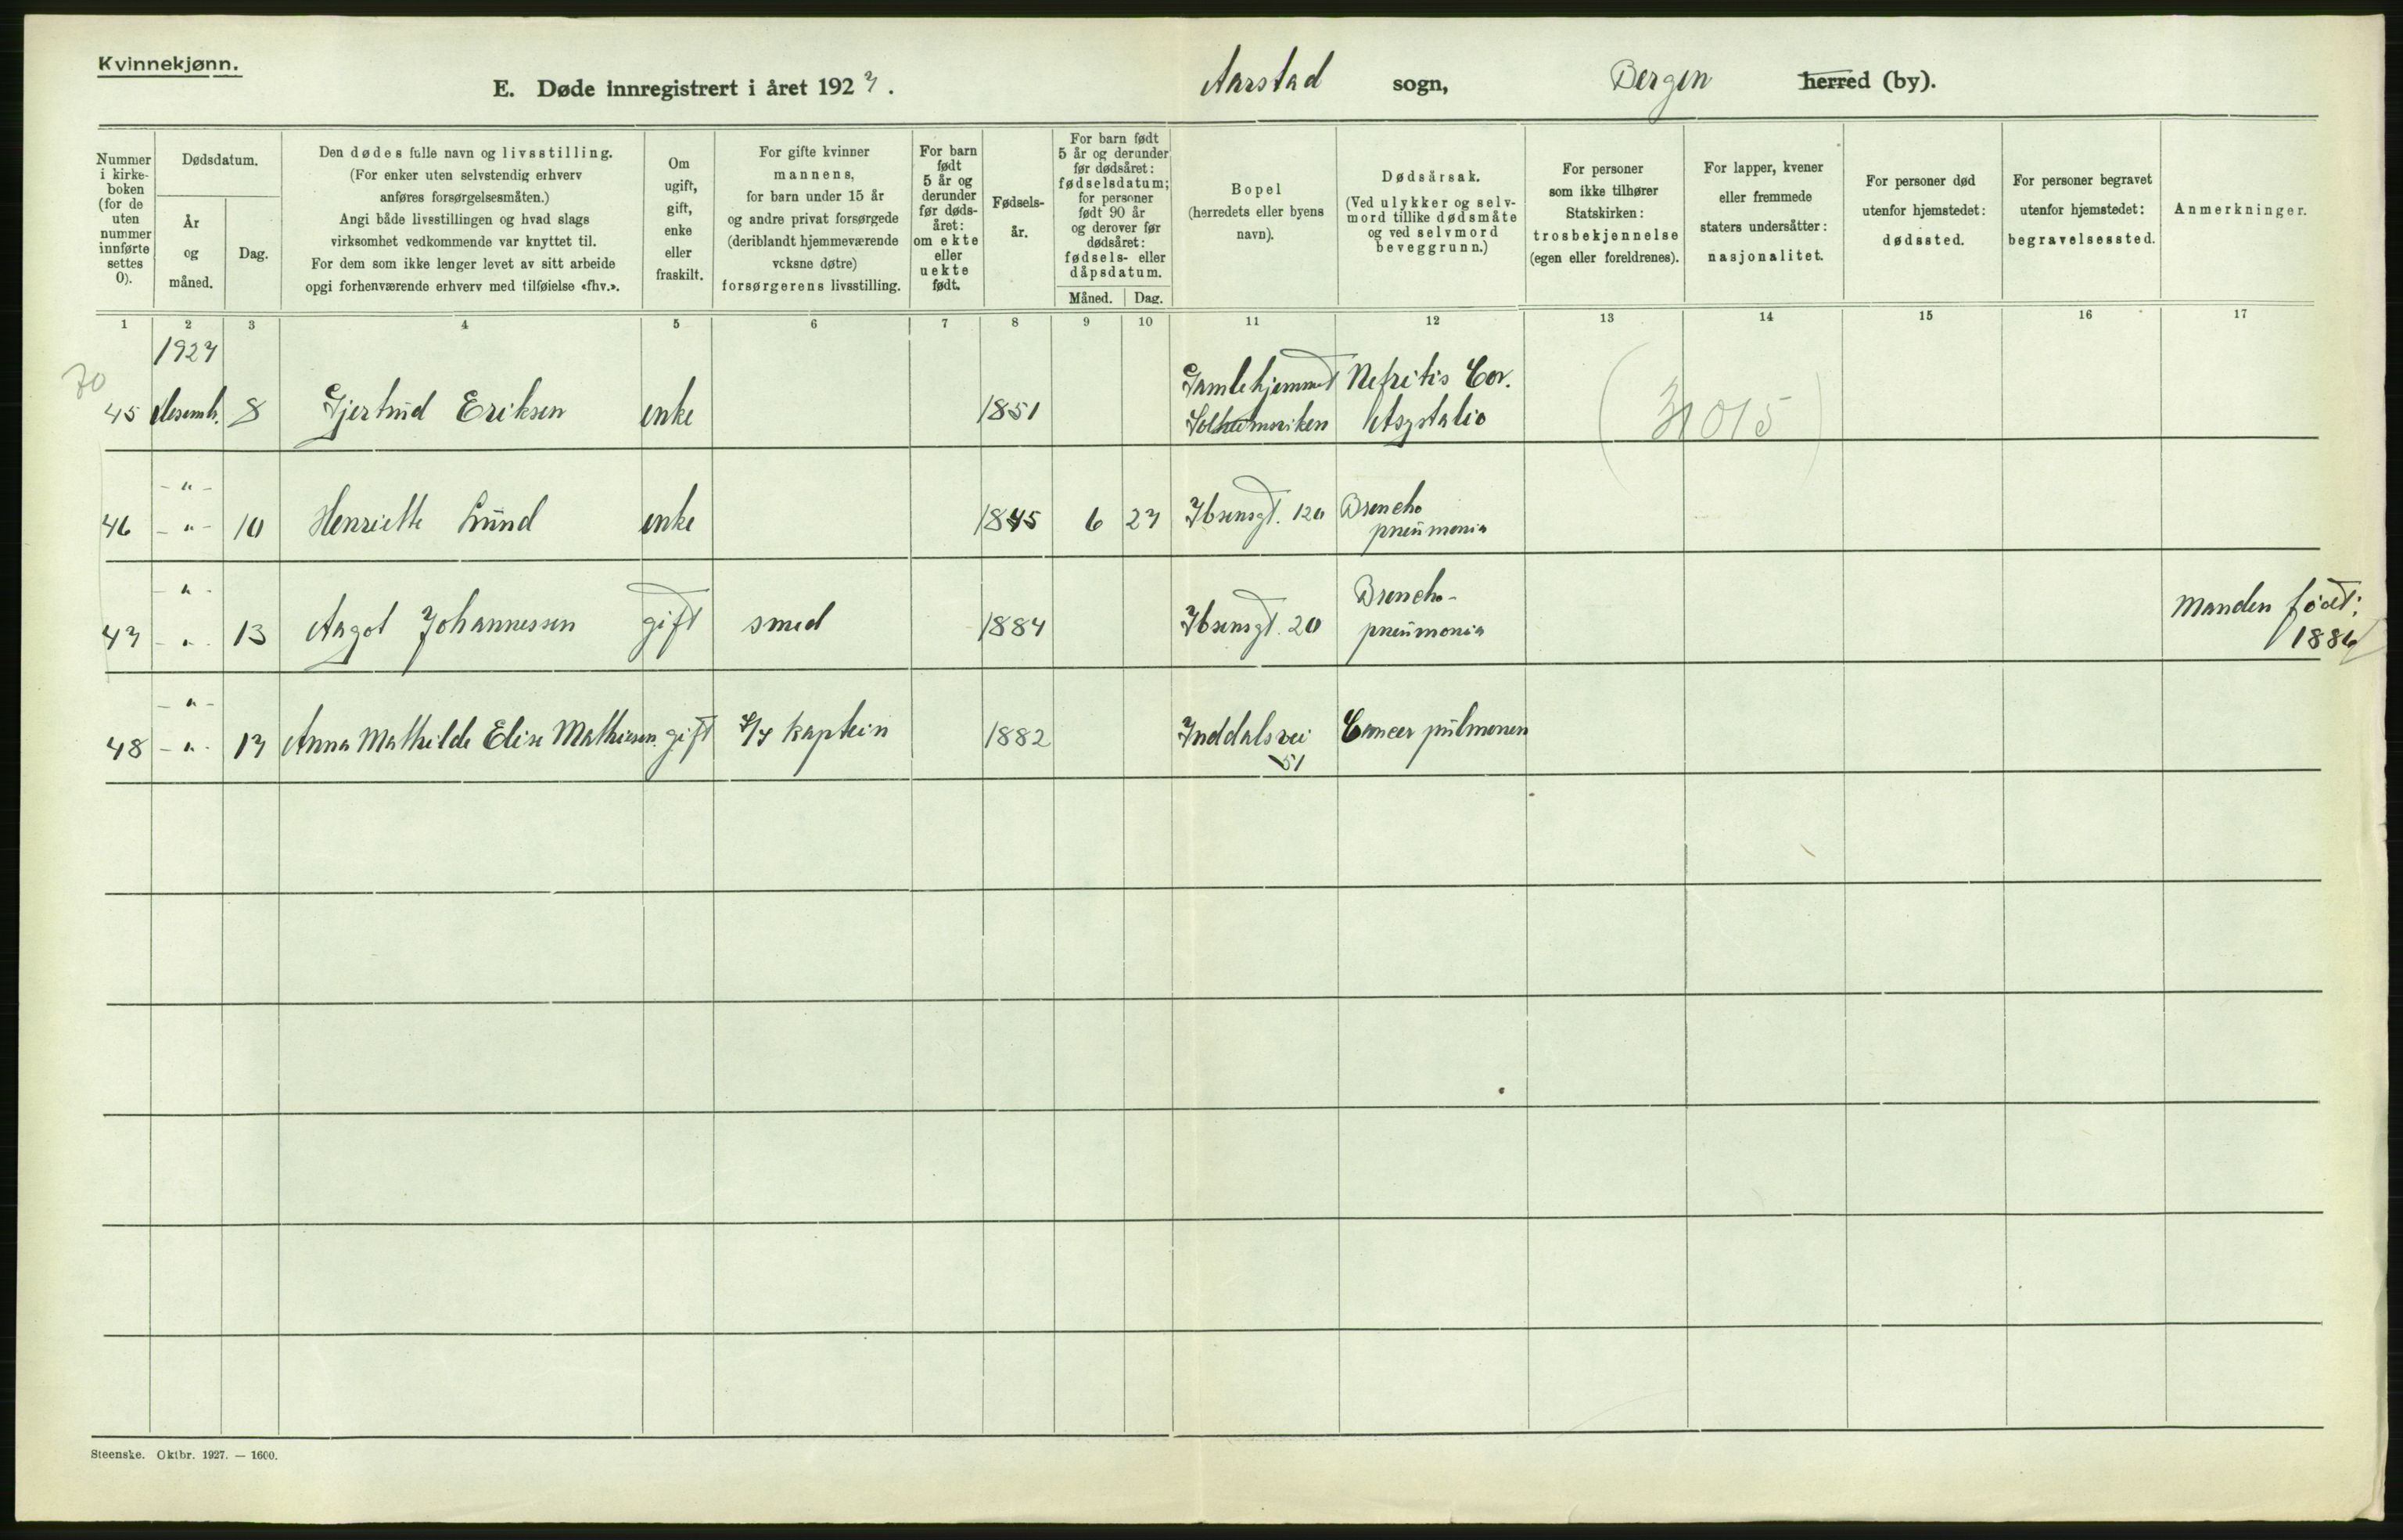 Kvinnekjønn.
E. Døde innregistrert i året 1927. Aarstad sogn, Bergen herred (by).
Nummer i kirke-boken (for de uten nummer innførte settes 0).
Dødsdatum.
År og måned.
Dag.
Den dødes fulle navn og livsstilling.
(For enker uten selvstendig erhverv
anføres forsørgelsesmåten.)
Angi både livsstillingen og hvad slags
virksomhet vedkommende var knyttet til.
For dem som ikke lenger levet av sitt arbeide
opgi forhenværende erhverv med tilføielse «fhv.».
Om
ugift,
gift,
enke
eller
fraskilt.
For gifte kvinner
mannens,
for barn under 15 år
og andre privat forsørgede
(deriblandt hjemmeværende
vcksne døtre)
forsørgerens livsstilling.
For barn
født
5 år og
derunder
før døds-
året:
om ekte
eller
uekte
født.
Fødsels-
år.
For barn født
5 år og derunder
før dødsåret:
fødselsdatum;
for personer
født 90 år
og derover før
dødsåret:
fødsels- eller
dåpsdatum.
Måned. Dag.
Bopel
(herredets eller byens
navn).
Dødsårsak.
(Ved ulykker og selv-
mord tillike dødsmåte
og ved selvmord
beveggrunn.)
For personer
som ikke tilhører
Statskirken:
trosbekjennelse
(egen eller foreldrenes).
For lapper, kvener
eller fremmede
staters undersåtter:
nasjonalitet.
For personer død
utenfor hjemstedet:
dødssted.
For personer begravet
utenfor hjemstedet:
begravelsessted.
Anmerkninger.
1 2 3 4 5 6 7 8 9 10 11 12 13 14 15 16 17
1927
70
45 desemb. 8 Gjertrud Eriksen enke 1851 Gamlehjemmet Solheimsviken Nefritis Cor. Asystolio
46 - " - - " - 10 Henriette Lund enke 1845 6 27 Ibsensgt. 120 Broncho pneumonia
47 - " - - " - 13 Aagot Johannessen gift smed 1884 Ibsensgt. 20 Broncho- pneumonia Manden født: 1886
48 - " - - " - 17 Anna Mathilde Elise Mathiesen gift S/S Kaptein 1882 Inddalsvei 51 Cancer pulmonen
Steenske. Oktbr. 1927. — 1600.